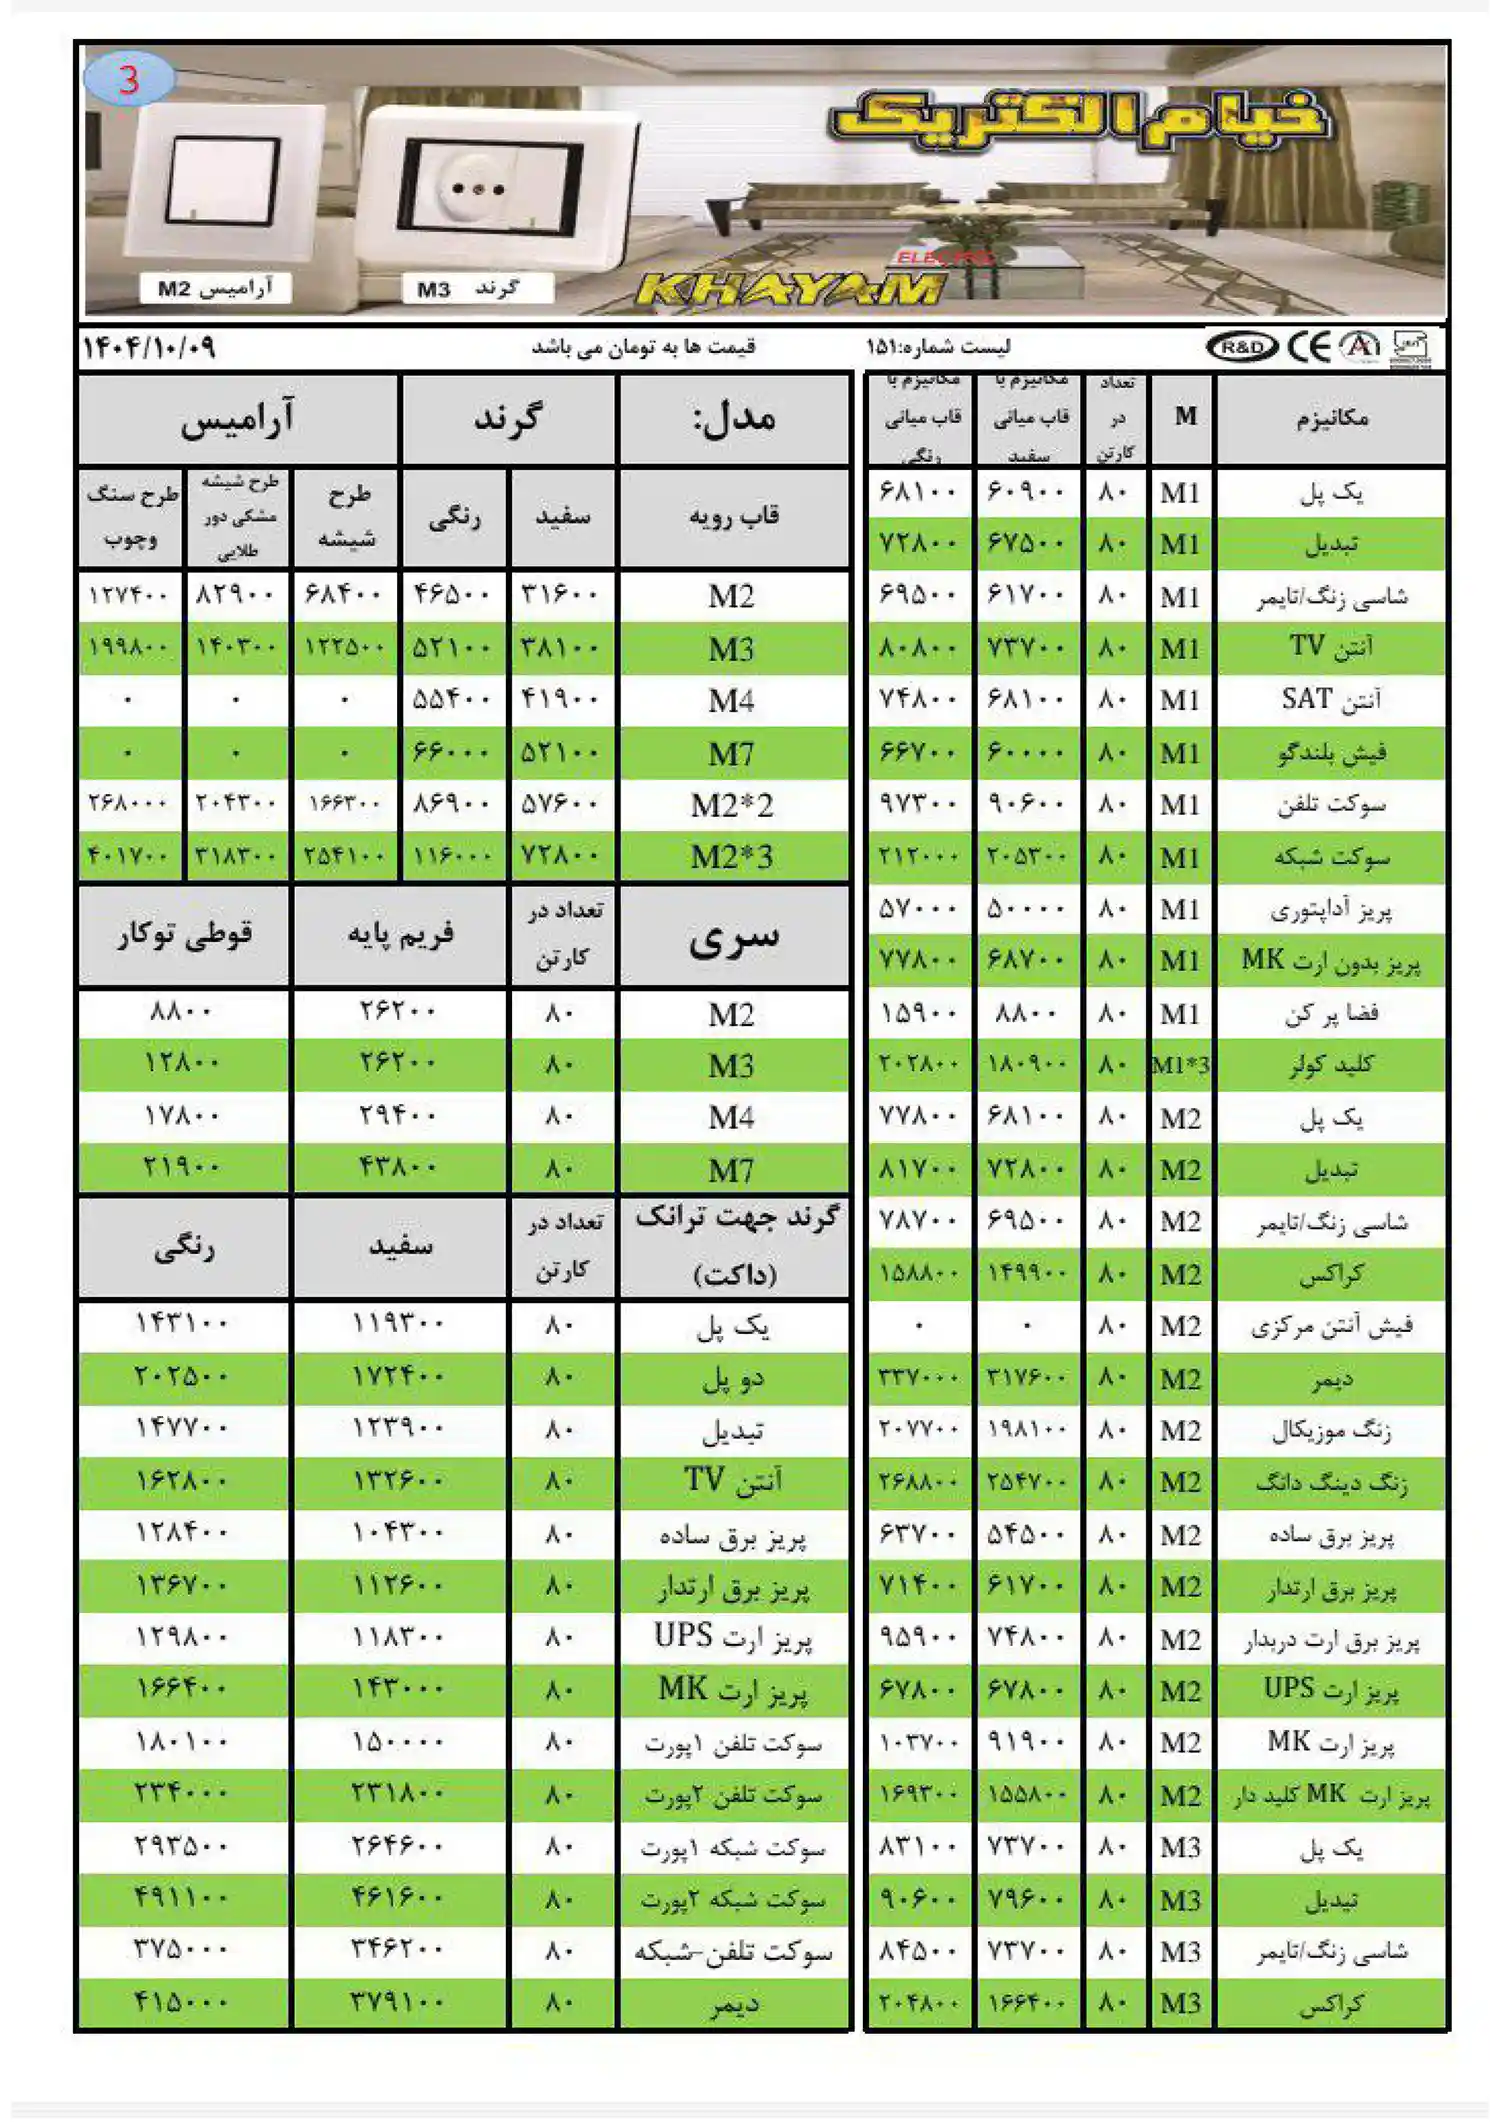 3
خیام الکتریک
ELECTRIC
KHAYAM
آرامیس M2
گرند M3
R&D CE
لیست شماره:۱۵۱
قیمت ها به تومان می باشد
۱۴۰۴/۱۰/۰۹
مکانیزم | M | تعداد در کارتن | مکانیزم با قاب میانی سفید | مکانیزم با قاب میانی رنگی
یک پل | M1 | ۸۰ | ۶۰۹۰۰ | ۶۸۱۰۰
تبدیل | M1 | ۸۰ | ۶۷۵۰۰ | ۷۲۸۰۰
شاسی زنگ/تایمر | M1 | ۸۰ | ۶۱۷۰۰ | ۶۹۵۰۰
آنتن TV | M1 | ۸۰ | ۷۳۷۰۰ | ۸۰۸۰۰
آنتن SAT | M1 | ۸۰ | ۶۸۱۰۰ | ۷۴۸۰۰
فیش بلندگو | M1 | ۸۰ | ۶۰۰۰۰ | ۶۶۷۰۰
سوکت تلفن | M1 | ۸۰ | ۹۰۶۰۰ | ۹۷۳۰۰
سوکت شبکه | M1 | ۸۰ | ۲۰۵۳۰۰ | ۲۱۲۰۰۰
پریز آداپتوری | M1 | ۸۰ | ۵۰۰۰۰ | ۵۷۰۰۰
پریز بدون ارت MK | M1 | ۸۰ | ۶۸۷۰۰ | ۷۷۸۰۰
فضا پر کن | M1 | ۸۰ | ۸۸۰۰ | ۱۵۹۰۰
کلید کولر | M1*3 | ۸۰ | ۱۸۰۹۰۰ | ۲۰۲۸۰۰
یک پل | M2 | ۸۰ | ۶۸۱۰۰ | ۷۷۸۰۰
تبدیل | M2 | ۸۰ | ۷۲۸۰۰ | ۸۱۷۰۰
شاسی زنگ/تایمر | M2 | ۸۰ | ۶۹۵۰۰ | ۷۸۷۰۰
کراکس | M2 | ۸۰ | ۱۴۹۹۰۰ | ۱۵۸۸۰۰
فیش آنتن مرکزی | M2 | ۸۰ | ۰ | ۰
دیمر | M2 | ۸۰ | ۳۱۷۶۰۰ | ۳۳۷۰۰۰
زنگ موزیکال | M2 | ۸۰ | ۱۹۸۱۰۰ | ۲۰۷۷۰۰
زنگ دینگ دانگ | M2 | ۸۰ | ۲۵۴۷۰۰ | ۲۶۸۸۰۰
پریز برق ساده | M2 | ۸۰ | ۵۴۵۰۰ | ۶۳۷۰۰
پریز برق ارتدار | M2 | ۸۰ | ۶۱۷۰۰ | ۷۱۴۰۰
پریز برق ارت دربدار | M2 | ۸۰ | ۷۴۸۰۰ | ۹۵۹۰۰
پریز ارت UPS | M2 | ۸۰ | ۶۷۸۰۰ | ۶۷۸۰۰
پریز ارت MK | M2 | ۸۰ | ۹۱۹۰۰ | ۱۰۳۷۰۰
پریز ارت MK کلید دار | M2 | ۸۰ | ۱۵۵۸۰۰ | ۱۶۹۳۰۰
یک پل | M3 | ۸۰ | ۷۳۷۰۰ | ۸۳۱۰۰
تبدیل | M3 | ۸۰ | ۷۹۶۰۰ | ۹۰۶۰۰
شاسی زنگ/تایمر | M3 | ۸۰ | ۷۳۷۰۰ | ۸۴۵۰۰
کراکس | M3 | ۸۰ | ۱۶۶۴۰۰ | ۲۰۴۸۰۰
مدل: | گرند | آرامیس
قاب رویه | سفید | رنگی | طرح شیشه | طرح شیشه مشکی دور طلایی | طرح سنگ وچوب
M2 | ۳۱۶۰۰ | ۴۶۵۰۰ | ۶۸۴۰۰ | ۸۲۹۰۰ | ۱۲۷۴۰۰
M3 | ۳۸۱۰۰ | ۵۲۱۰۰ | ۱۲۲۵۰۰ | ۱۴۰۳۰۰ | ۱۹۹۸۰۰
M4 | ۴۱۹۰۰ | ۵۵۴۰۰ | ۰ | ۰ | ۰
M7 | ۵۲۱۰۰ | ۶۶۰۰۰ | ۰ | ۰ | ۰
M2*2 | ۵۷۶۰۰ | ۸۶۹۰۰ | ۱۶۶۳۰۰ | ۲۰۴۳۰۰ | ۲۶۸۰۰۰
M2*3 | ۷۲۸۰۰ | ۱۱۶۰۰۰ | ۲۵۴۱۰۰ | ۳۱۸۳۰۰ | ۴۰۱۷۰۰
سری | تعداد در کارتن | فریم پایه | قوطی توکار
M2 | ۸۰ | ۲۶۲۰۰ | ۸۸۰۰
M3 | ۸۰ | ۲۶۲۰۰ | ۱۲۸۰۰
M4 | ۸۰ | ۲۹۴۰۰ | ۱۷۸۰۰
M7 | ۸۰ | ۴۳۸۰۰ | ۲۱۹۰۰
گرند جهت ترانک (داکت) | تعداد در کارتن | سفید | رنگی
یک پل | ۸۰ | ۱۱۹۳۰۰ | ۱۴۳۱۰۰
دو پل | ۸۰ | ۱۷۲۴۰۰ | ۲۰۲۵۰۰
تبدیل | ۸۰ | ۱۲۳۹۰۰ | ۱۴۷۷۰۰
آنتن TV | ۸۰ | ۱۳۲۶۰۰ | ۱۶۲۸۰۰
پریز برق ساده | ۸۰ | ۱۰۴۳۰۰ | ۱۲۸۴۰۰
پریز برق ارتدار | ۸۰ | ۱۱۲۶۰۰ | ۱۳۶۷۰۰
پریز ارت UPS | ۸۰ | ۱۱۸۳۰۰ | ۱۲۹۸۰۰
پریز ارت MK | ۸۰ | ۱۴۳۰۰۰ | ۱۶۶۴۰۰
سوکت تلفن ۱پورت | ۸۰ | ۱۵۰۰۰۰ | ۱۸۰۱۰۰
سوکت تلفن ۲پورت | ۸۰ | ۲۳۱۸۰۰ | ۲۳۴۰۰۰
سوکت شبکه ۱پورت | ۸۰ | ۲۶۴۶۰۰ | ۲۹۳۵۰۰
سوکت شبکه ۲پورت | ۸۰ | ۴۶۱۶۰۰ | ۴۹۱۱۰۰
سوکت تلفن-شبکه | ۸۰ | ۳۴۶۲۰۰ | ۳۷۵۰۰۰
دیمر | ۸۰ | ۳۷۹۱۰۰ | ۴۱۵۰۰۰